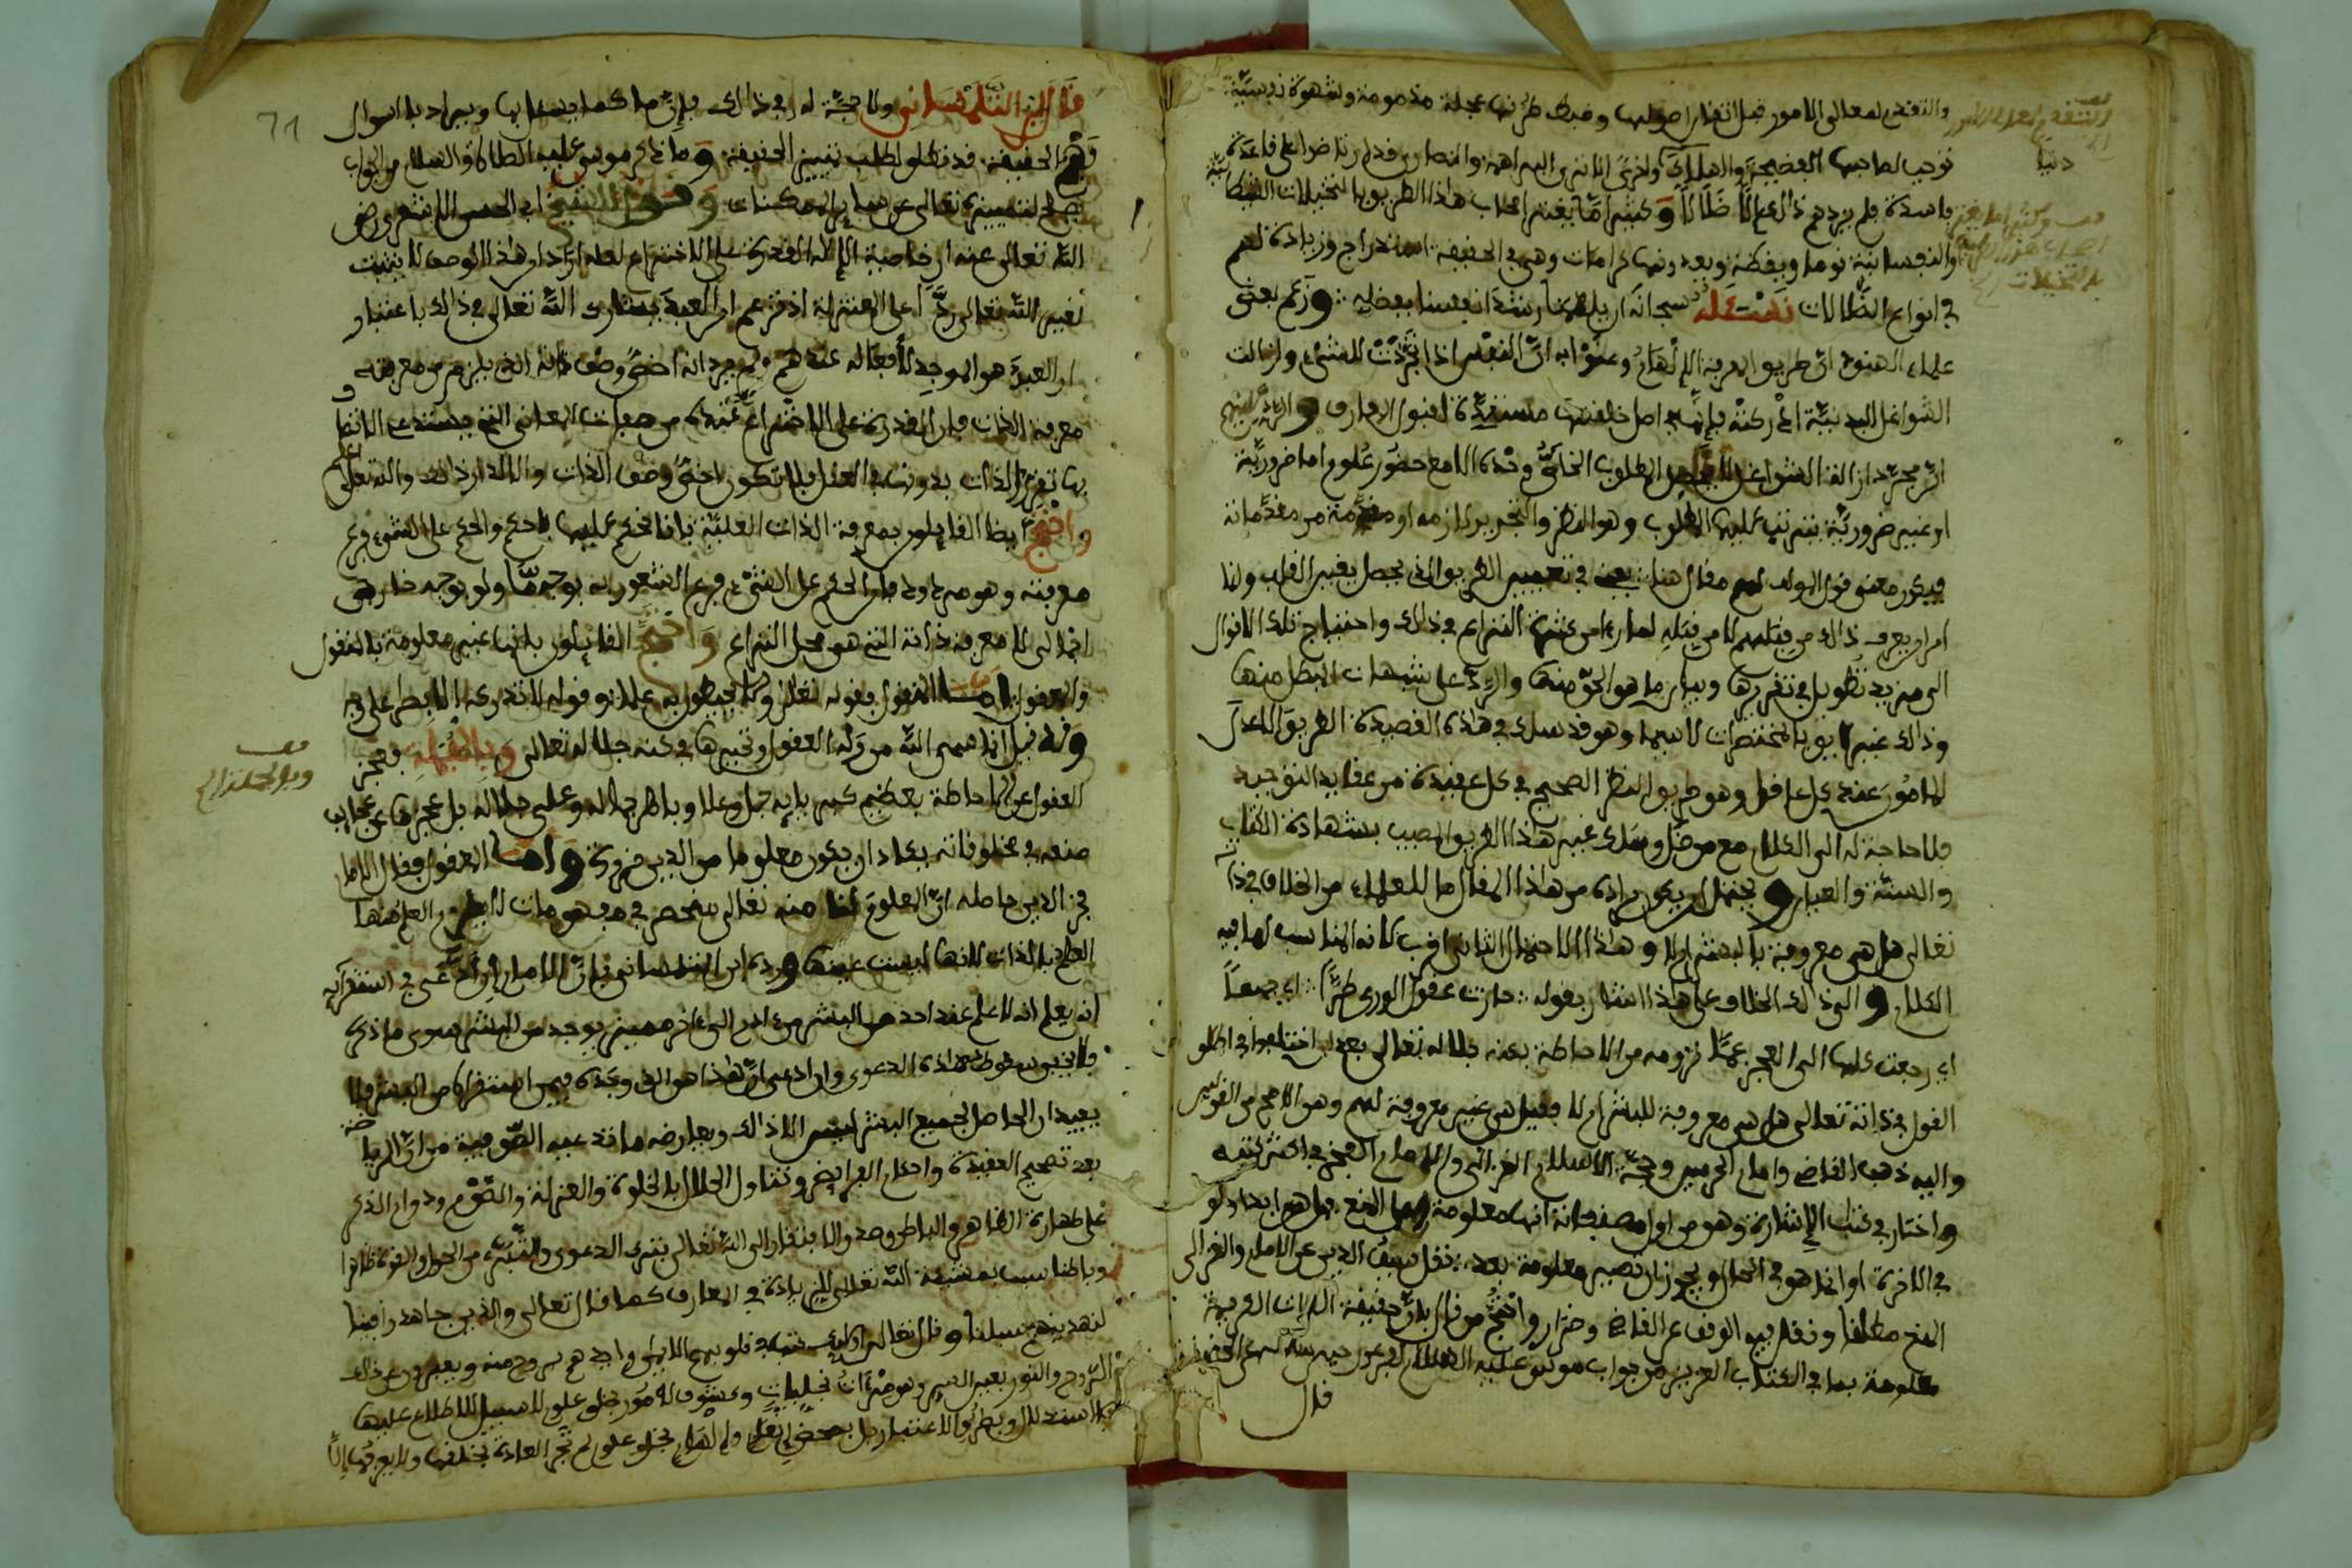 والتقدم لمعالي الأمور قبل اتقان اصولها وضبط طرقها عجلة مذمومة وشهوة نفسية
توجب لصاحبها الفضيحة والهلاك واخرى الا ترى البراهمة والنصارى قد ارتاضوا على قاعدة
فاسدة فلم يزدهم ذالك الا ضلالا وكثيرا ما يغتر اصحاب هذا الطريق بالتخيلات الشيطانية
والنفسانية نوما ويقظة ويعدونها كرامات وهي في الحقيقة استدراج وزيادة لهم
في انواع الضلالات نسئله سبحانه ان يلهمنا رشد انفسنا بفضله وزعم بعض
علماء الهنود ان طريق المعرفة الإلهام وعنوا به ان النفس اذا تجردت للشيء وازالت
الشواغل البدنية ادركته فإنها في اصل خلقتها مستعدة لقبول المعارف والرد عليهم
ان مجرد ازالة الشواغل لا يحصل المطلوب الخاص وحده الا مع حضور علوم اما ضرورية
او غير ضرورية يترتب عليها المطلوب وهو النظر والتجريد لازمه او مقدمة من مقدماته
فيكون معنى قول المولف لهم مقال هنا يعني في تعميم الطريق الذي يحصل بغير القلب ولنا
امر ان يعرف ذالك من قبلهم لا من قبله لما رءا من كثرة النزاع في ذلك واحتياج تلك الاقوال
الى مزيد تطويل في تقريرها وبيان ما هو الحق منها والرد على شبهات المبطل منها
وذالك غير لايق بالمختصرات لا سيما وهو قد سلك في هذه القصيدة الطريق الاعدل
المامور عند كل عاقل وهو طريق النظر الصحيح في كل عقيدة من عقايد التوحيد
فلا حاجة له الى الكلام مع من ضل وسلك غير هذا الطريق المصيب بشهادة الكتاب
والسنة والعيان ويحتمل ان يكون مراده من هذا المقال ما للعلماء من الخلاف في ذاته
تعالى هل هي معروفة للبشر ام لا وهذا الاحتمال الثاني اقرب لانه المناسب لما فيه
الكلام والى ذالك الخلاف على هذا اشار بقوله حارت عقول الورى طرا اي جميعا
اي رجعت كلها الى العجز عما ترومه من الاحاطة بكنه جلاله تعالى بعد ان اختلفوا في اطلاق
القول في ذاته تعالى هل هي معروفة للبشر ام لا فقيل هي غير معروفة لهم وهو الاصح من القولين
واليه ذهب القاضي وامام الحرمين وحجة الاسلام الغزالي والامام الفخر في اكثر كتبه
واختار في كتاب الإشارة وهو من اول مصنفاته انها معلومة وعلى المنع فهل هو ابدا ولو
في الاخرة او انما هو في الحال ويجوز ان تصير معلومة بعد نقل سيف الدين عن الامام والغزالي
المنع مطلقا ونقل فيه الوقف عن القاضي وضرار واحتج من قال بان حقيقة الذات العلية
معلومة بما في الكتاب العزيز من جواب موسى عليه السلام لفرعون حين سأله عن الحقيقة
قال
التقدم لمعالي الأمور
وكثيرا ما يغتر
اصحاب هذا الطريق
بالتخيلات الخ
71
قال ابن التلمساني ولا حجة له في ذالك فإن ما كما يسئل بها ويراد بالسوال
وهي الحقيقة قد تكون لطلب تمييز الحقيقة وما ذكر موسى عليه الصلاة والسلام من الجواب
يصلح لتمييزه تعالى عن ساير الممكنات وقول الشيخ ابي الحسن الاشعري رضي
الله تعالى عنه ان خاصية الإلاه القدرة على الاختراع لعله اراد ان هذا الوصف لا يثبت
لغير الله تعالى ردا على المعتزلة اذ زعموا ان العبد يشارك الله تعالى في ذالك باعتبار
ان العبد هو الموجد لأفعاله عندهم ولم يرد انه اخص وصف ذاته الذي يلزم من معرفته
معرفة الذات فان القدرة على الاختراع عنده من صفات المعاني التي يستدعى الاتصاف
بها تقرر الذات بدونها في العقل فلا تكون اخص وصف الذات والا لدار ذالك والله تعالى اعلم
واحتج ايضا القايلون بمعرفة الذات العلية بانا نحكم عليها باحكام والحكم على الشيء فرع
معرفته وهو مردود فان الحكم على الشيء فرع الشعور به بوجه ما ولو بوجه خارجي
اجمالي لا معرفة ذاته التي هو محل النزاع واحتج القايلون بانها غير معلومة بالنقول
والعقول اما المنقول فقوله تعالى ولا يحيطون به علما وقوله لا تدركه الابصار على وجه
وله قيل انما سمي الله من وله العقول وتحيرها في كنه جلاله تعالى وبالجملة فعجز
العقول عن الاحاطة بعظيم كبريايه جل وعلا وباهر جماله وعلى جلاله بل عجزها عن عجايب
صنعه في مخلوقاته يكاد ان يكون معلوما من الدين ضرورة واما المعقول فقال الامام
فخر الدين حاصله ان المعلوم لنا منه تعالى منحصر في مفهومات لا يلزم من العلم بها
العلم بالذات لانها ليست عينها ورده ابن التلمساني بان الامام ان ادعى في استقرايه
انه يعلم انه لا علم عند احد من البشر من ادم الى ءاخر من يوجد من البشر سوى ما ذكر
فلا يخفى سقوط هذه الدعوى وان ادعى ان هذا هو الذي وجده فيمن استقراه من البشر فلا
يفيد ان الحاصل لجميع البشر ليس الا ذالك ويعارضه ما تدعيه الصوفية من ان الرياضة
بعد تصحيح العقيدة واحكام الفرايض وتناول الحلال بالخلوة والعزلة والصوم ودوام الذكر
على طهارة الظاهر والباطن وصدق الافتقار الى الله تعالى بترك الدعوى والتبرء من الحول والقوة ظاهرا
وباطنا سبب بمشيئة الله تعالى للزيادة في المعارف كما قال تعالى والذين جاهدوا فينا
لنهدينهم سبلنا وقال تعالى اوليك كتب في قلوبهم الايمان وايدهم بروح منه ويعبرون عن ذلك
الروح والنور بعين السر وهو مرءات تجليات وكشوف لأمور جلو علوم لا سبيل للاطلاع عليها
بالاستدلال وبطريق الاعتبار بل بمحض التعلم والهام بخلو علوم لم تجر العادة بخلقها ولا يعرفها إلا
وبالجملة الخ